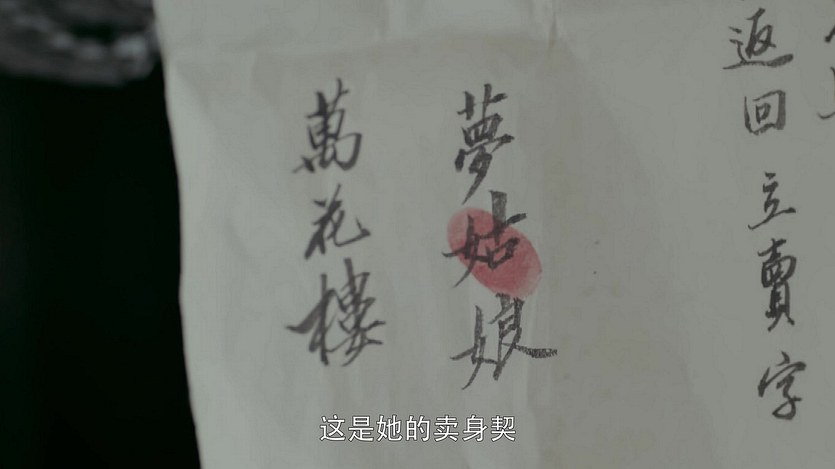 返回立賣字
夢姑娘
萬花樓
这是她的卖身契